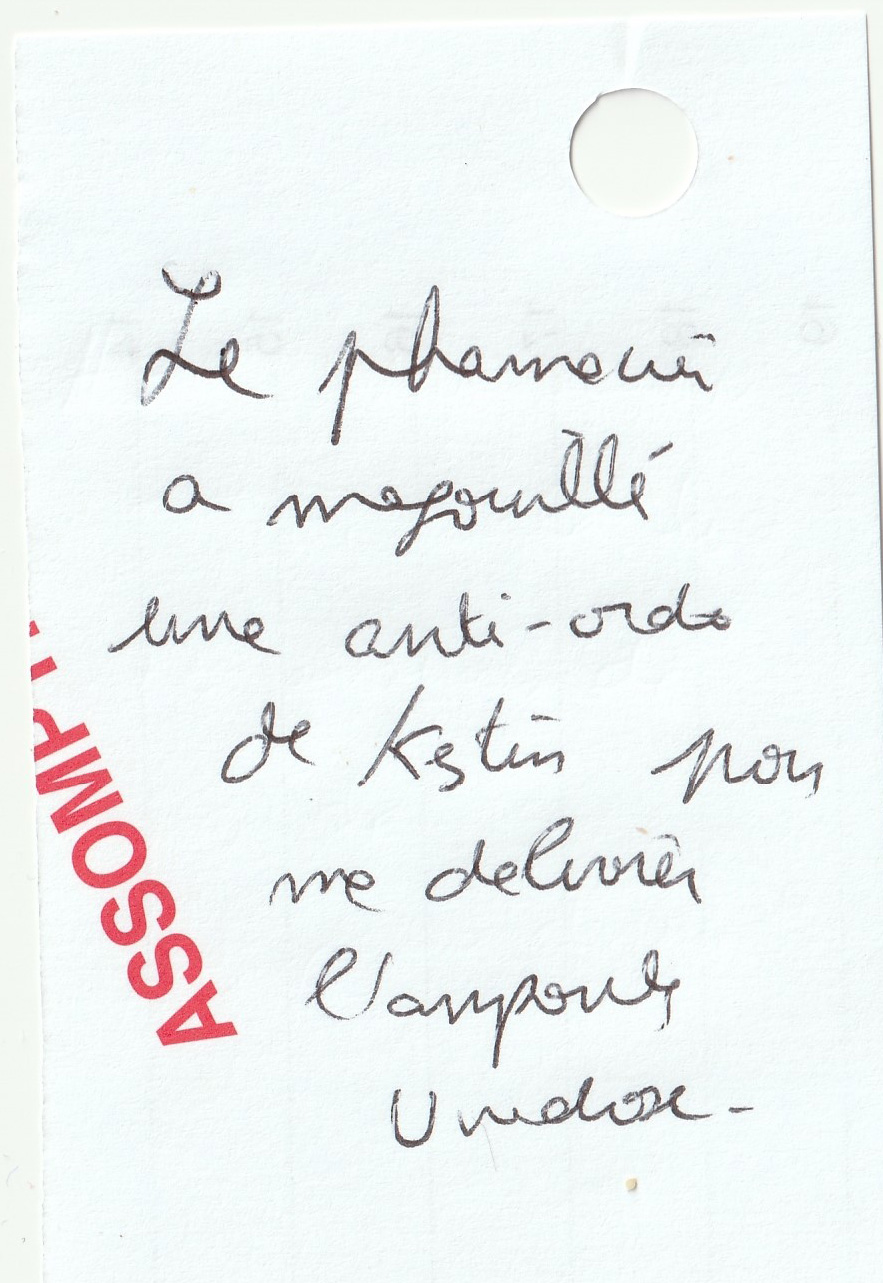 Le pharmacien
a magouillé
une anti-ordo
de Kestin pour
me delivrer
l'ampoule
Unedose-
ASSOMPT